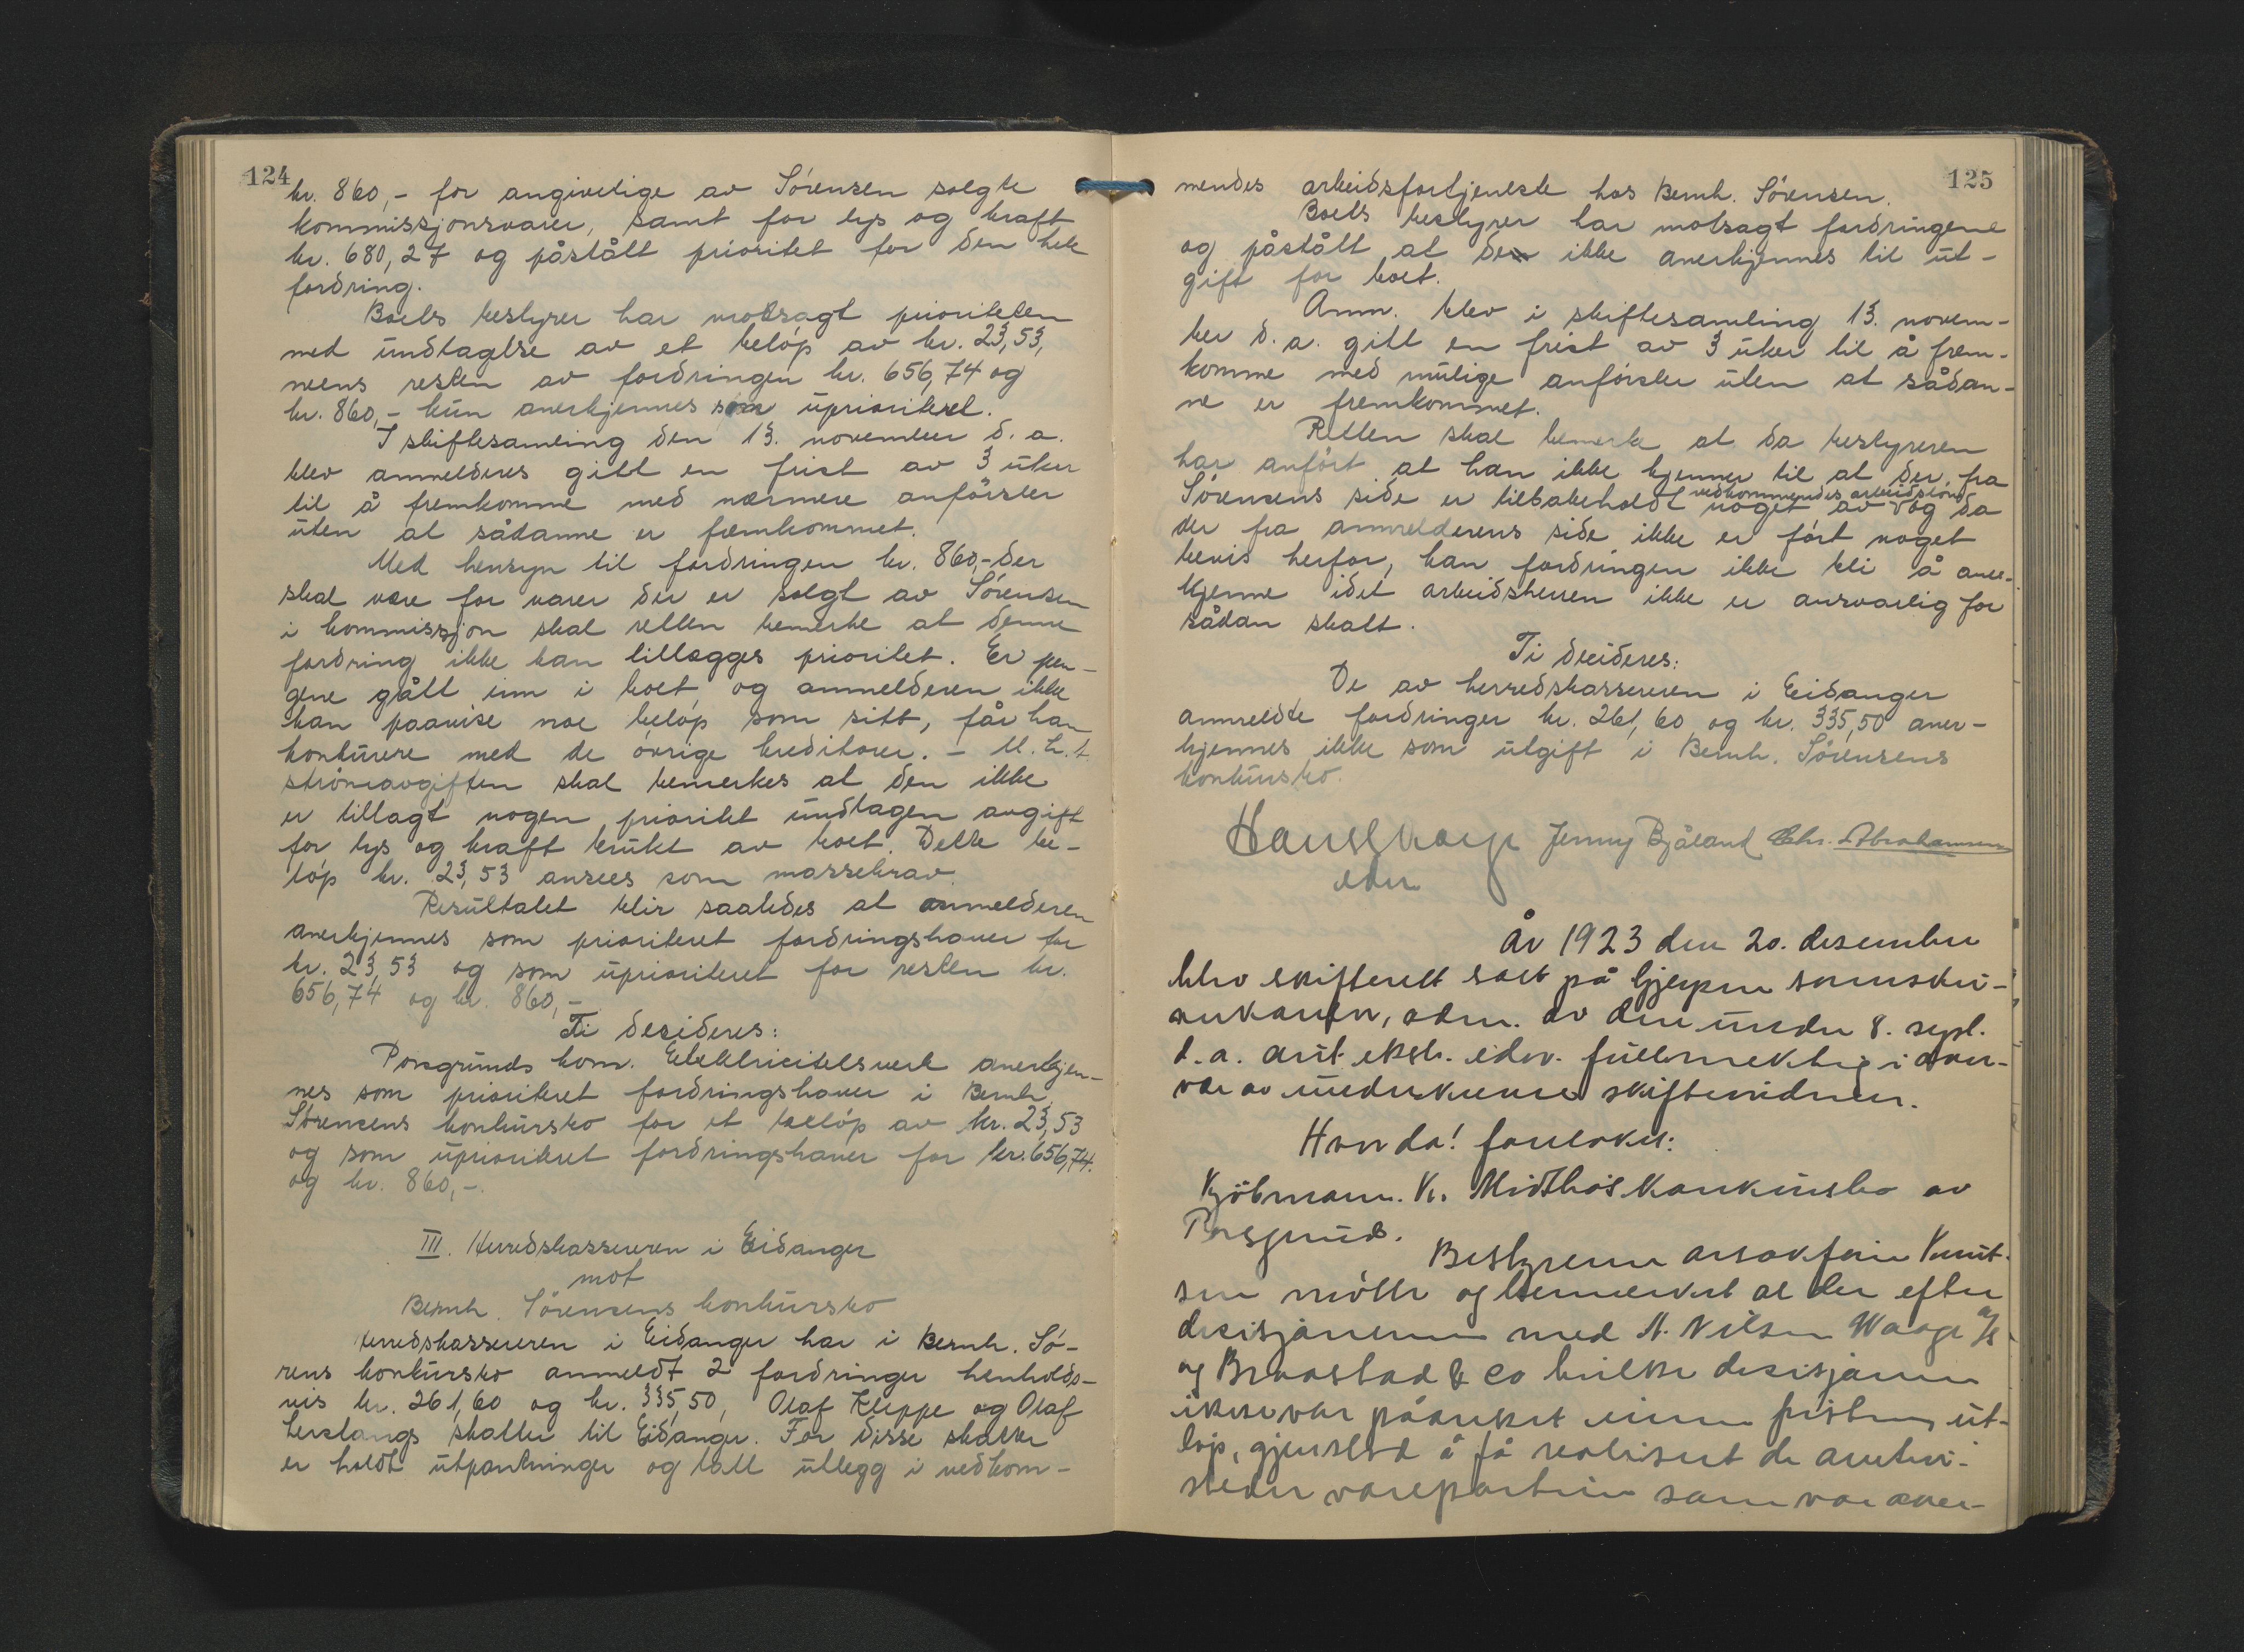 124
kr. 860,- for angivelige av Sörensen solgte
kommissjonsvarer, samt for lys og kraft
kr. 680,27 og påstått prioritet for den hele
fordring.
Boets bestyrer har motsagt prioriteten
med undtagelse av et belöp av kr. 23,53,
meens resten av fordringen kr. 656,74 og
kr. 860,- kun anerkjennes som uprioritert.
I skiftesamling den 13. november d. a.
blev anmelderes gitt en frist av 3 uker
til å fremkomme med nærmere anförsler
uten at sådanne er fremkommet.
Med hensyn til fordringen kr. 860,- der
skal være for varer der er solgt av Sörensen
i kommissjon skal retten bemerke at denne
fordring ikke kan tillægges prioritet. Er pen-
gene gått inn i boet og anmelderen ikke
kan paavise noe belöp som sitt, får han
konkurere med de övrige kreditorer. - M. h. t.
strömavgiften skal bemerkes at den ikke
er tillagt nogen prioritet undtagen avgift
for lys og kraft brukt av boet. Dette be-
löp kr. 23,53 ansees som massekrav.
Resultatet blir saaledes at anmelderen
anerkjennes som prioritert fordringshaver for
kr. 23,53 og som uprioriteret for resten kr.
656,74 og kr. 860,-
Ti desideres:
Porsgrunds kom. Elektricitetsverk anerkjen-
nes som prioriteret fordringshaver i Bernh.
Sörensens konkursbo for et beelöp av kr. 23,53
og som uprioriteret fordringshaver for kr. 656,74.
og kr. 860,-.
III. Herredskassereren i Eidanger
mot
Bernh. Sörensens konkursbo
Herredskassereren i Eidanger har i Bernh. Sö-
rens konkursbo anmeldt 2 fordringer henholds-
vis kr. 261,60 og kr. 335,50, Olaf Kleppe og Olaf
skatter til Eidanger. For disse skatter
er holdt utpantninger og tatt utlegg i vedkom-
125
mendes arbeidsfortjeneste hos Bernh. Sörensen.
Boets bestyrer har motsagt fordringene
og påstått at den ikke anerkjennes til ut-
gift for boet.
Anm. blev i skiftesamling 13. novem-
ber d. a. gitt en frist av 3 uker til å frem-
komme med mulige anförsler uten at sådan-
ne er fremkommet.
Retten skal bemerke at da bestyreren
har anfört at han ikke kjenner til at der fra
Sörensens side er tilbakeholdt noget av vedkommendes arbeidslön og da
der fra anmelderens side ikke er fört noget
bevis herfor, kan fordringen ikke bli å aner-
kjenne idet arbeidsherren ikke er ansvarlig for
sådan skatt.
Ti decideres:
De av herredskassereren i Eidanger
anmeldte fordringer kr. 261,60 og kr. 335,50 aner-
kjennes ikke som utgift i Bernh. Sörensens
konkursbo.
Jenny Bjåland Chr. Abrahamsen
edsv
År 1923 den 20. desember
blev skifterett satt på Gjerpen sorenskri-
verkontor, adm. av den under 8. sept.
d. a. aut. ekstr. edsv. fullmektig i over-
vær av undertegnede skiftevidner.
Hvorda! foretokes:
Kjöbmann K. Midtbös konkursbo av
Porsgrund.
Bestyreren orsakförer Knut-
sen mötte og bemerket at der efter
desisjonerne med N. Nilsen Waage A/S
og Braastad & Co hvilke desisjoner
ikke var påanket innen fristens ut-
löp, gjenstod å få realisert de
varepartier som var aner-